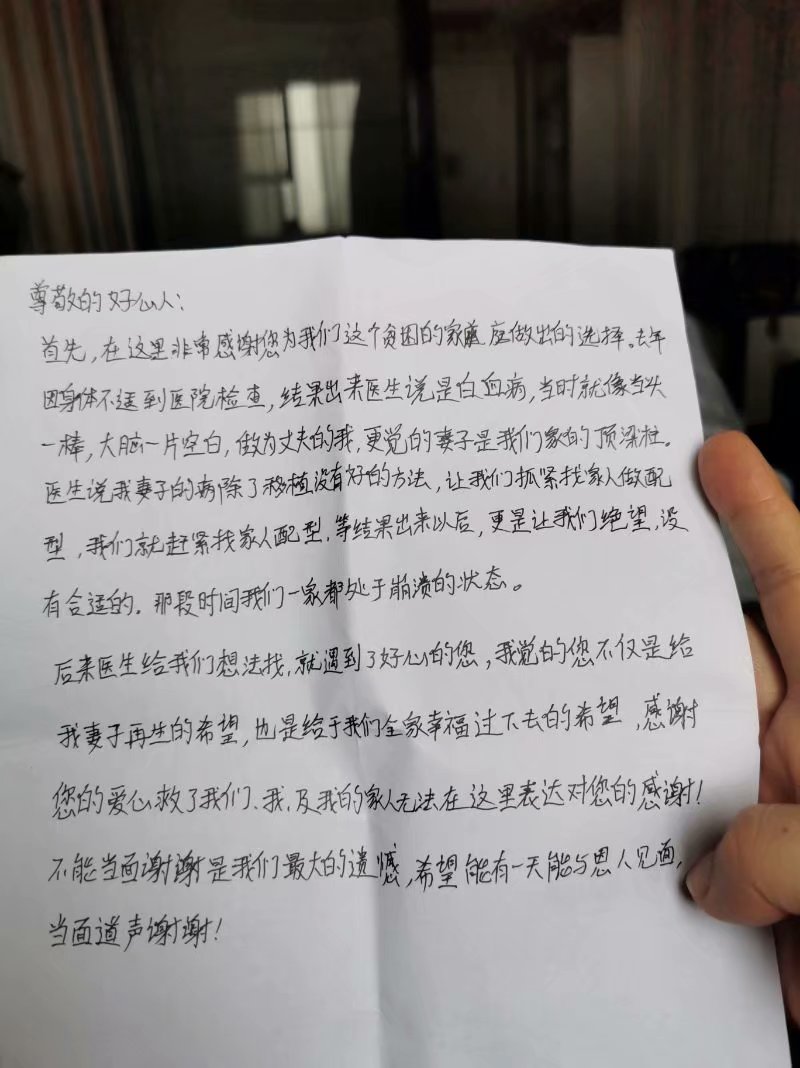 尊敬的好心人：
首先，在这里非常感谢您为我们这个贫困的家庭应做出的选择。去年
因身体不适到医院检查，结果出来医生说是白血病，当时就像当头
一棒，大脑一片空白，做为丈夫的我，更觉的妻子是我们家的顶梁柱。
医生说我妻子的病除了移植没有好的方法，让我们抓紧找家人做配
型，我们就赶紧找家人配型，等结果出来以后，更是让我们绝望，没
有合适的。那段时间我们一家都处于崩溃的状态。
后来医生给我们想法找，就遇到了好心的您，我觉的您不仅是给
我妻子再生的希望，也是给于我们全家幸福过下去的希望，感谢
您的爱心救了我们、我，及我的家人无法在这里表达对您的感谢！
不能当面谢谢是我们最大的遗憾，希望能有一天能与恩人见面，
当面道声谢谢！